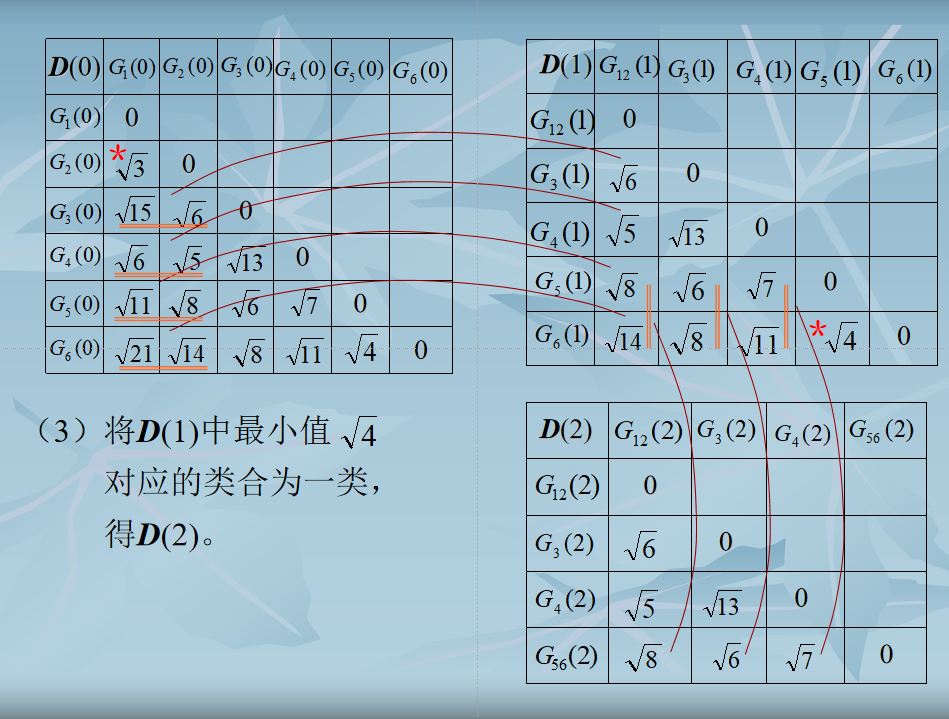 D(0) G₁(0) G₂(0) G₃(0) G₄(0) G₅(0) G₆(0)
G₁(0) 0
G₂(0) *√3 0
G₃(0) √15 √6 0
G₄(0) √6 √5 √13 0
G₅(0) √11 √8 √6 √7 0
G₆(0) √21 √14 √8 √11 √4 0
D(1) G₁₂(1) G₃(1) G₄(1) G₅(1) G₆(1)
G₁₂(1) 0
G₃(1) √6 0
G₄(1) √5 √13 0
G₅(1) √8 √6 √7 0
G₆(1) √14 √8 √11 *√4 0
(3)将D(1)中最小值 √4
对应的类合为一类,
得D(2)。
D(2) G₁₂(2) G₃(2) G₄(2) G₅₆(2)
G₁₂(2) 0
G₃(2) √6 0
G₄(2) √5 √13 0
G₅₆(2) √8 √6 √7 0